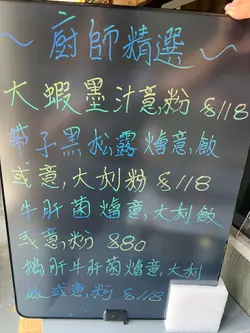 ～廚師精選～
大蝦墨汁意粉 $118
帶子黑松露燴意飯
或意大利粉 $118
牛肝菌燴意大利飯
或意粉 $80
鵝肝牛肝菌燴意大利
飯或意粉 $118